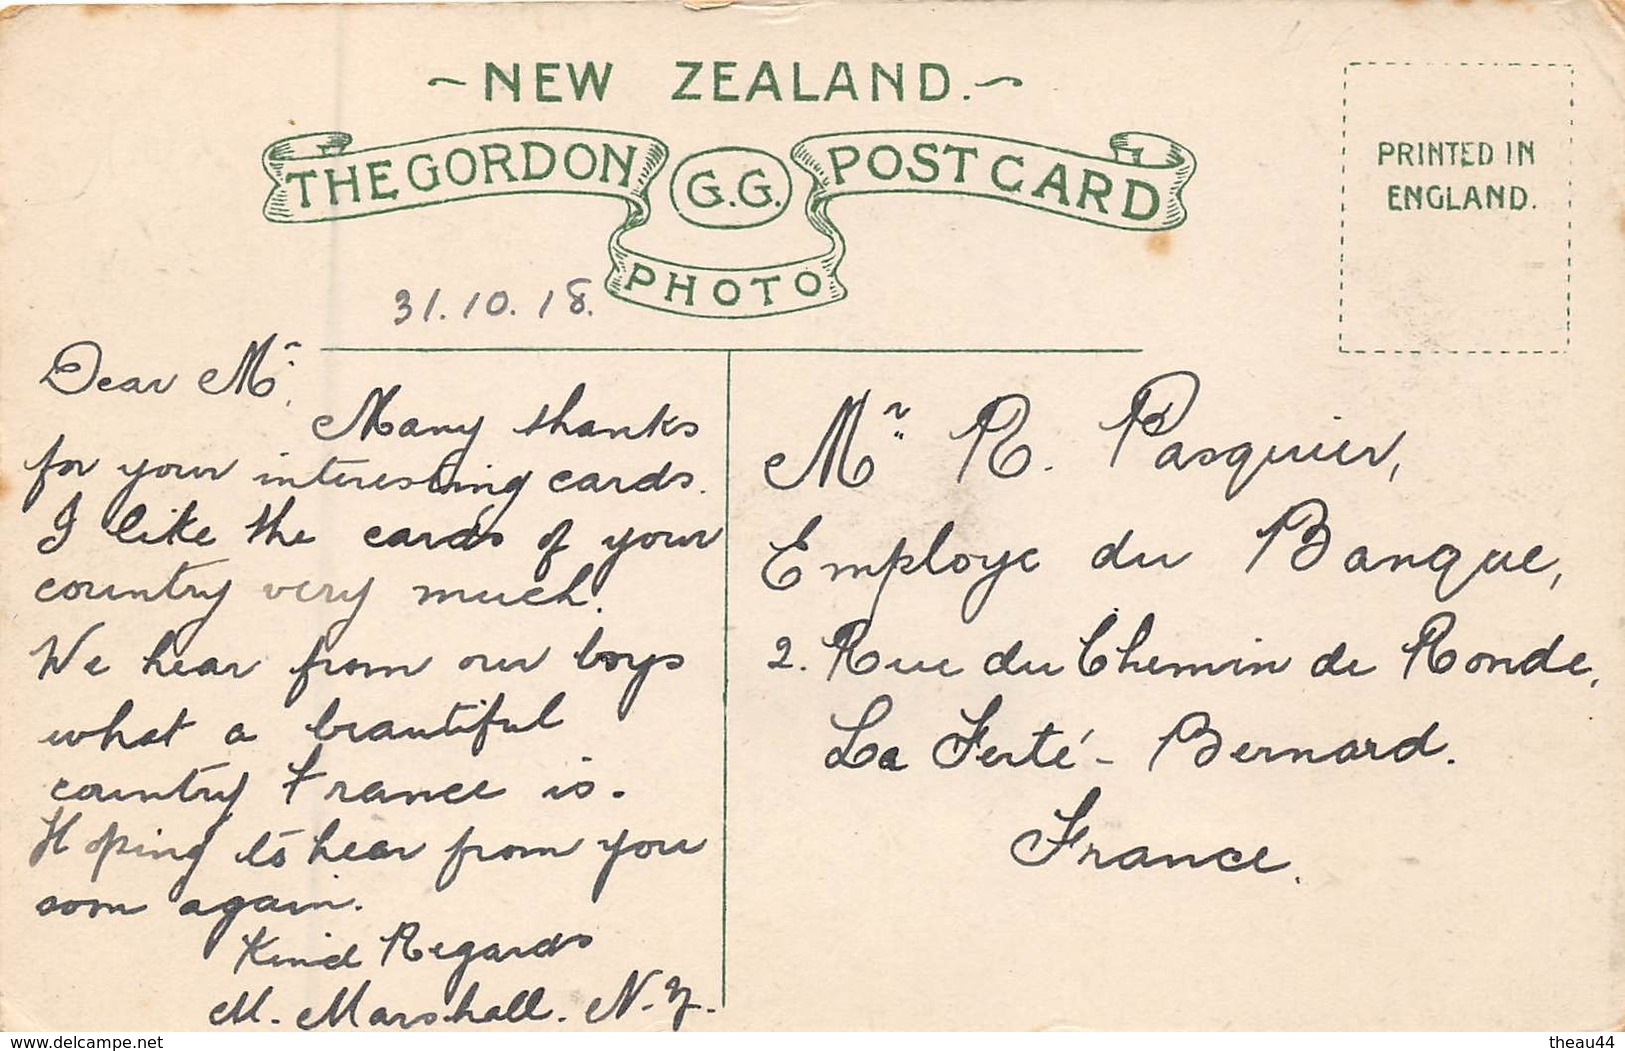 ~ NEW ZEALAND. ~
THE GORDON G.G. POST CARD
PHOTO
PRINTED IN
ENGLAND.
31.10.18.
Dear Mr.
Many thanks
for your interesting cards.
I like the cards of your
country very much.
We hear from our boys
what a beautiful
country France is.
Hoping to hear from you
som again.
Kind Regards
M. Marshall. N.Z.
Mr. R. Pasquier,
Employe du Banque,
2. Rue du Chemin de Ronde,
La Ferté - Bernard.
France.
www.delcampe.net
theau44